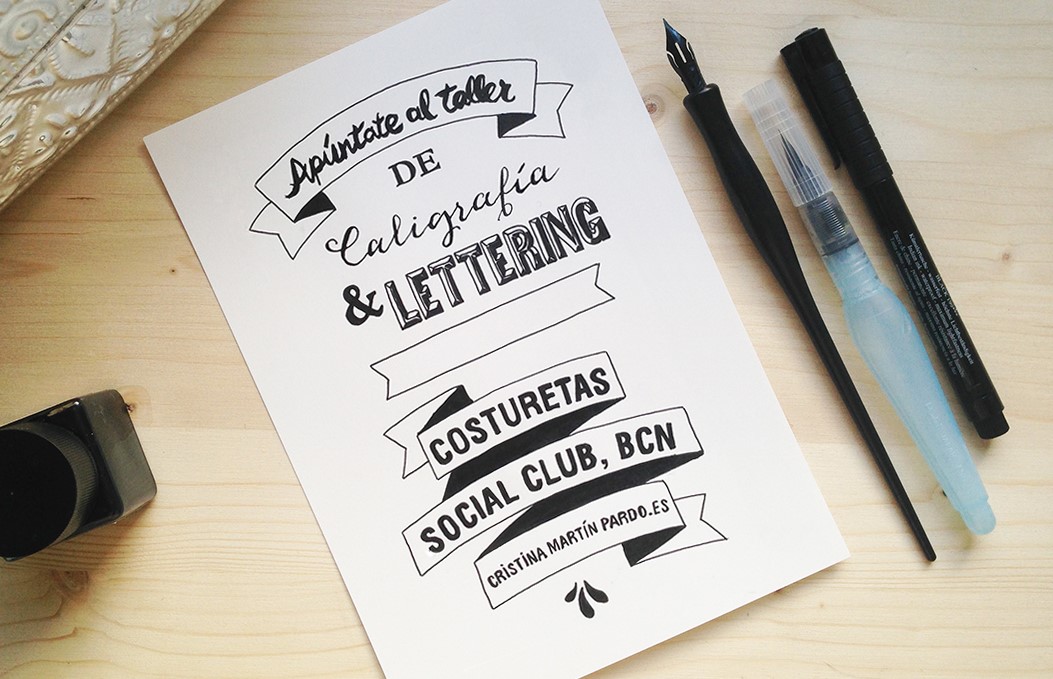 Apúntate al taller
DE
Caligrafía
& LETTERING
COSTURETAS
SOCIAL CLUB, BCN
CRISTINA MARTÍN PARDO.ES